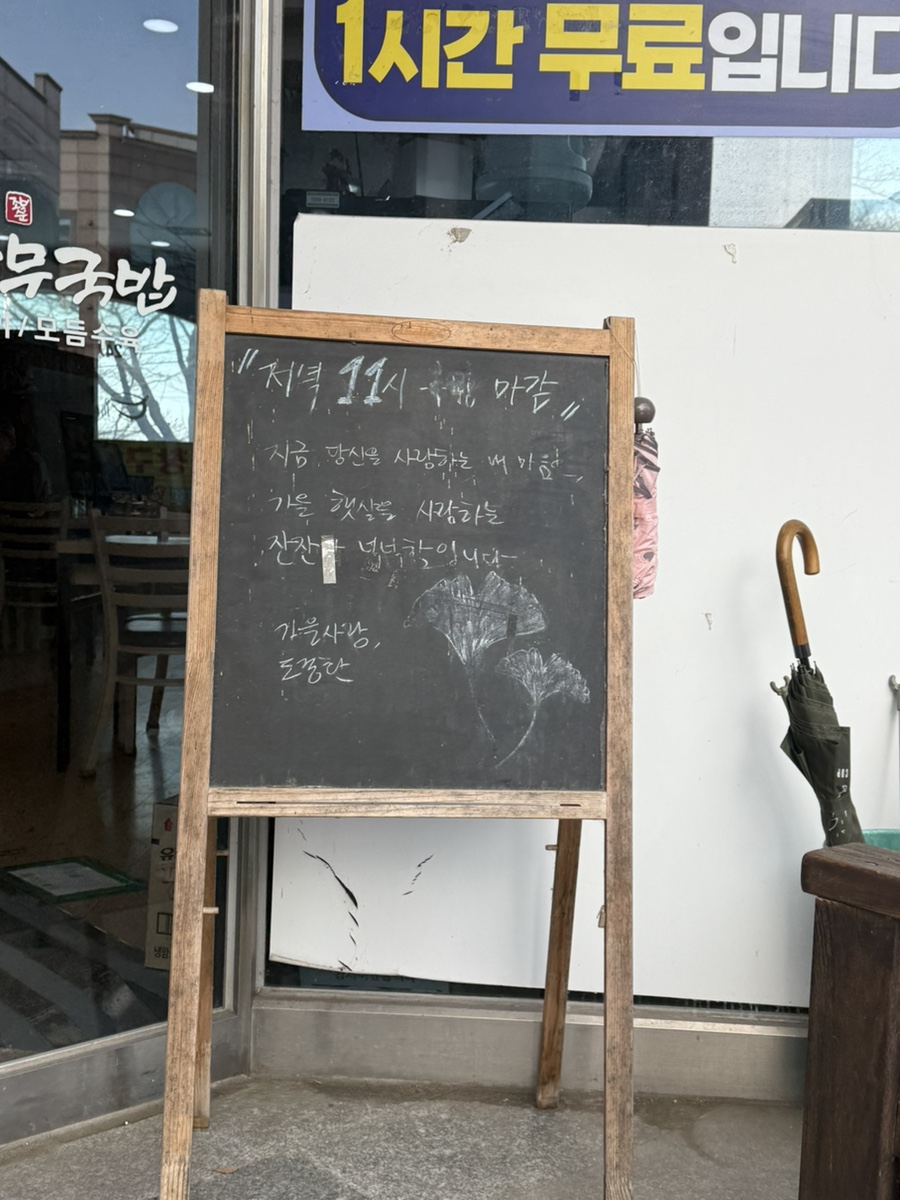 1시간 무료입니다
무국밥
/모듬수육
"저녁 11시 마감"
지금 당신을 사랑하는 내 마음은
가을 햇살을 사랑하는
잔잔한 넉넉함입니다
가을사랑,
도종환